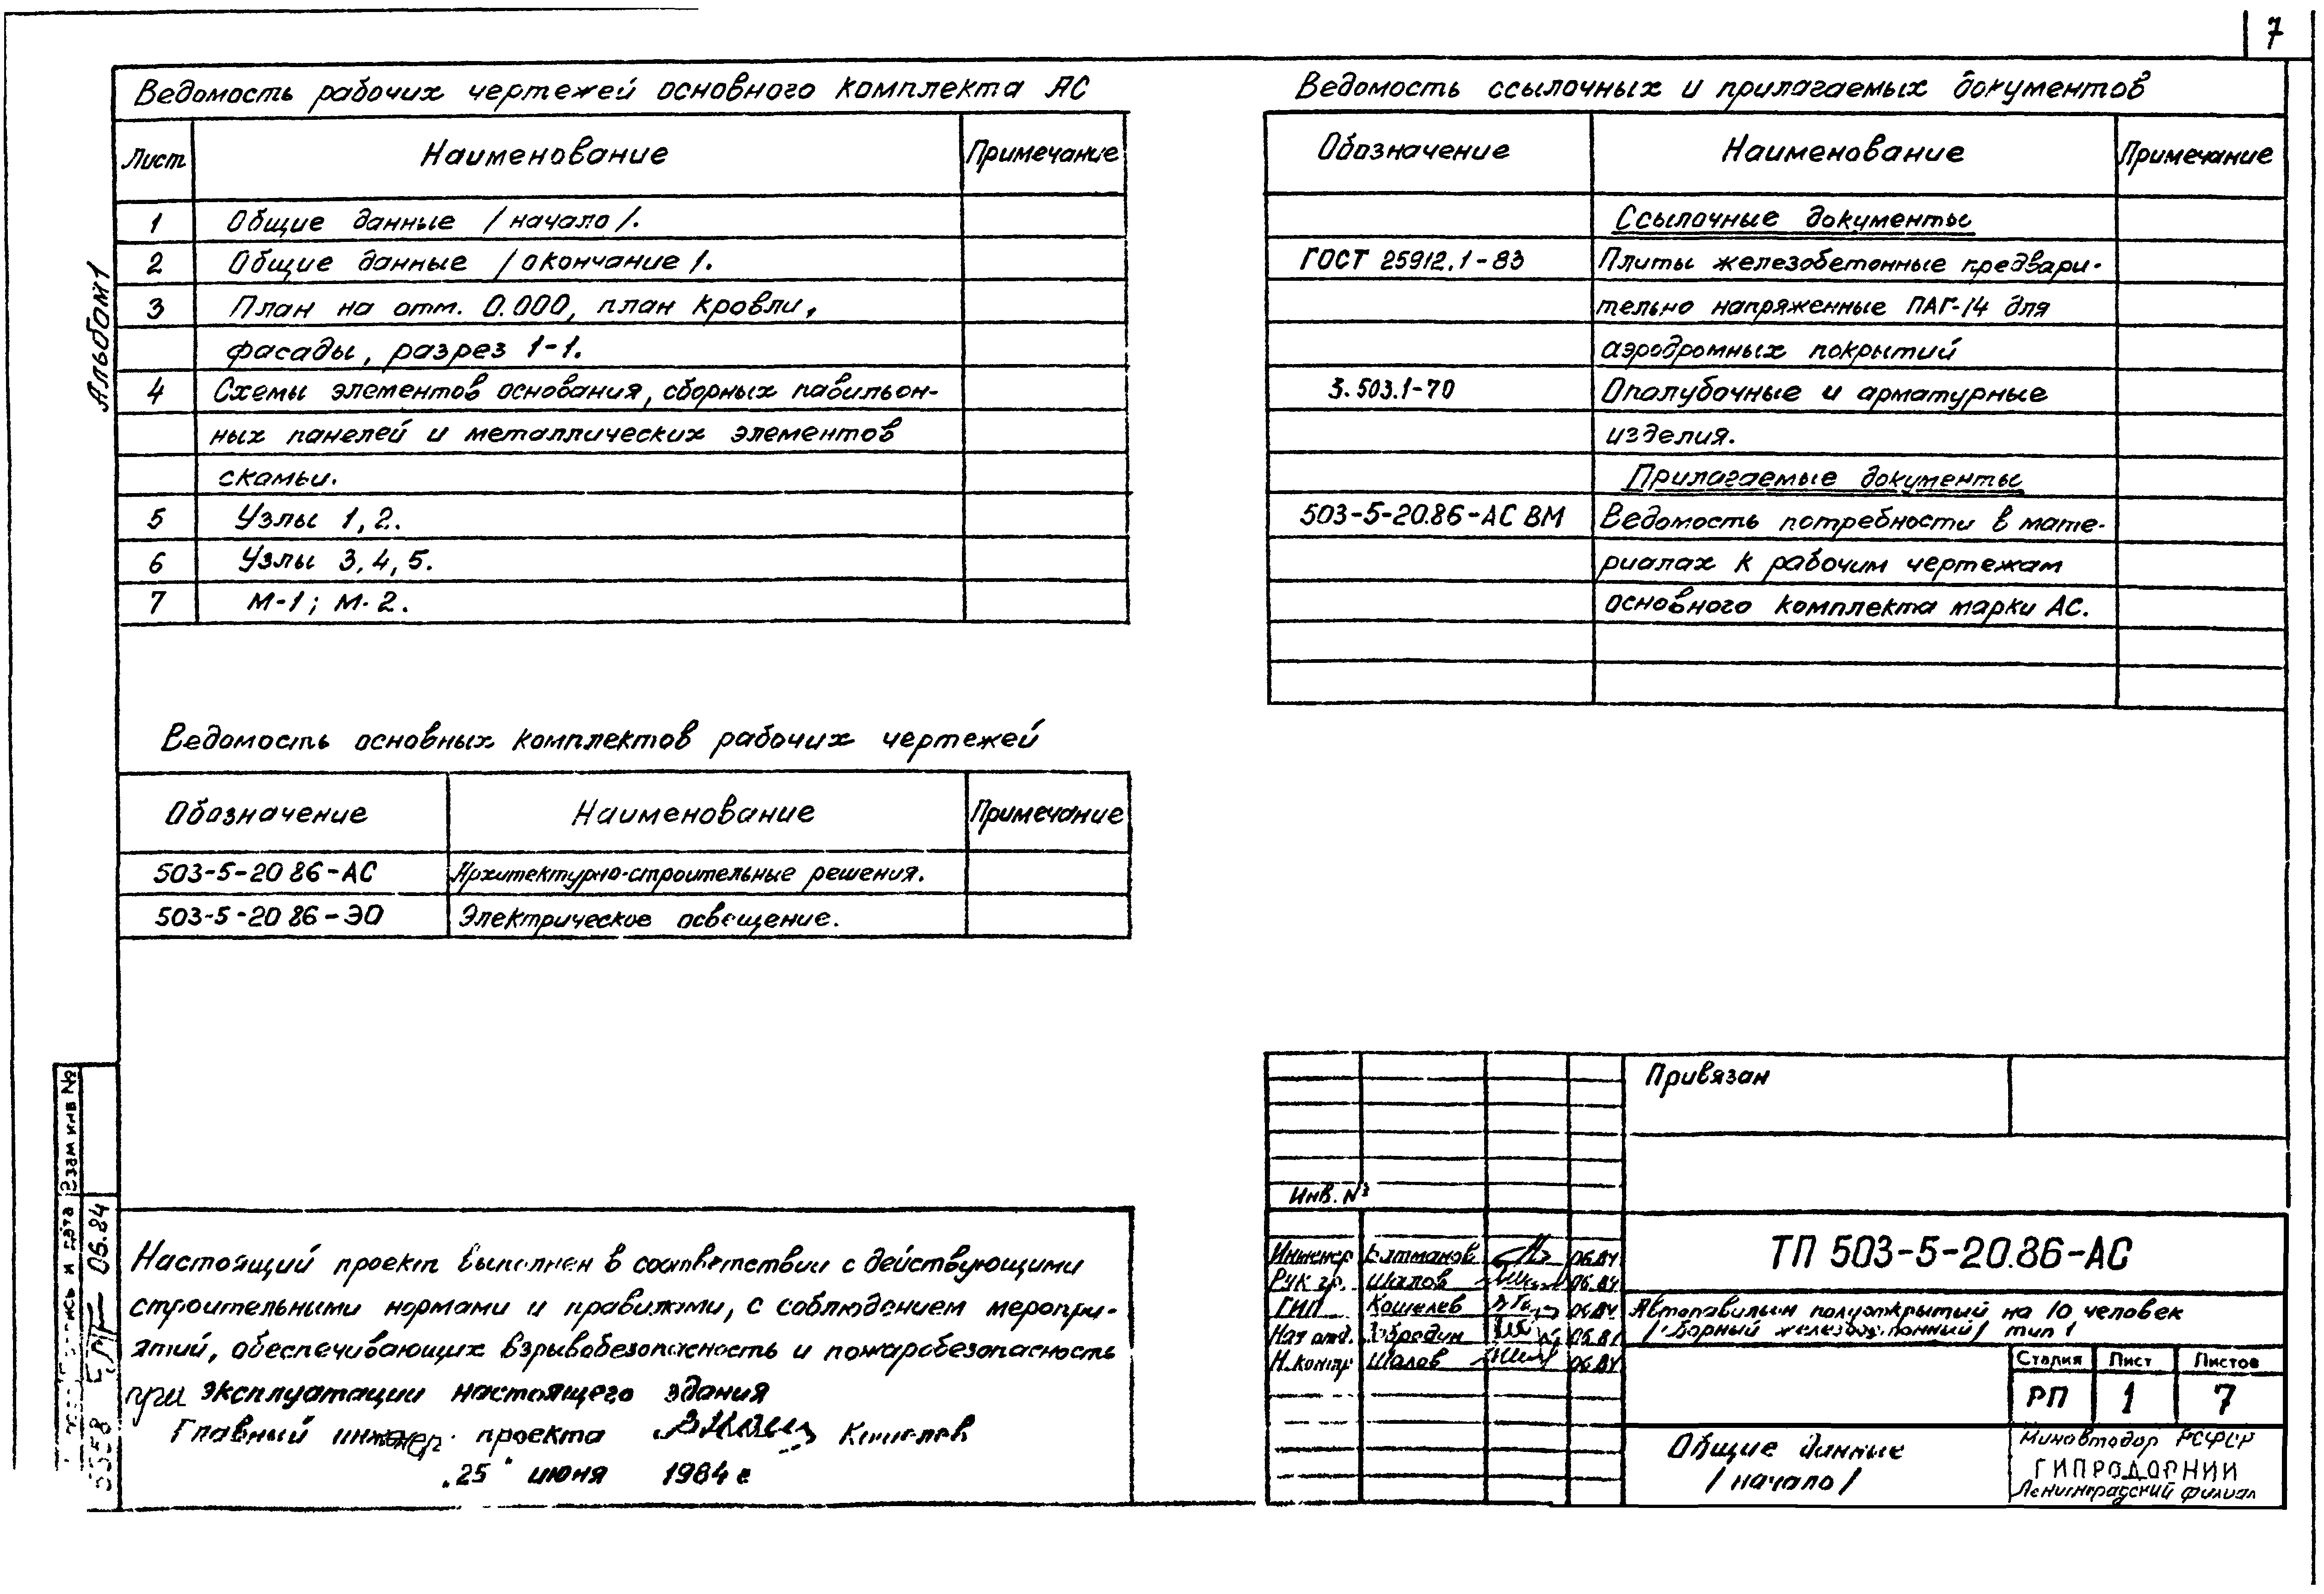 7
Альбом 1
Ведомость рабочих чертежей основного комплекта АС
Лист Наименование Примечание
1 Общие данные /начало/.
2 Общие данные /окончание/.
3 План на отм. 0.000, план кровли,
фасады, разрез 1-1.
4 Схемы элементов основания, сборных павильон-
ных панелей и металлических элементов
скамьи.
5 Узлы 1, 2.
6 Узлы 3, 4, 5.
7 М-1; М-2.
Ведомость основных комплектов рабочих чертежей
Обозначение Наименование Примечание
503-5-20 86-АС Архитектурно-строительные решения.
503-5-20 86-ЭО Электрическое освещение.
Ведомость ссылочных и прилагаемых документов
Обозначение Наименование Примечание
Ссылочные документы
ГОСТ 25912.1-83 Плиты железобетонные предвари-
тельно напряженные ПАГ-14 для
аэродромных покрытий
3.503.1-70 Опалубочные и арматурные
изделия.
Прилагаемые документы
503-5-20.86-АС ВМ Ведомость потребности в мате-
риалах к рабочим чертежам
основного комплекта марки АС.
Взам инв №
дата
06.84
Настоящий проект выполнен в соответствии с действующими
строительными нормами и правилами, с соблюдением меропри-
ятий, обеспечивающих взрывобезопасность и пожаробезопасность
при эксплуатации настоящего здания
Главный инженер проекта Кошелев
„25" июня 1984 г
Привязан
Инв. №
Инженер 06.84
Рук гр. Шалов 06.84
ГИП Кошелев 06.84
Нач отд. 06.84
Н. контр Шалов 06.84
ТП 503-5-20.86-АС
Автопавильон полуоткрытый на 10 человек
/сборный железобетонный/ тип 1
Стадия Лист Листов
РП 1 7
Общие данные
/начало/
Минавтодор РСФСР
ГИПРОДОРНИИ
Ленинградский филиал